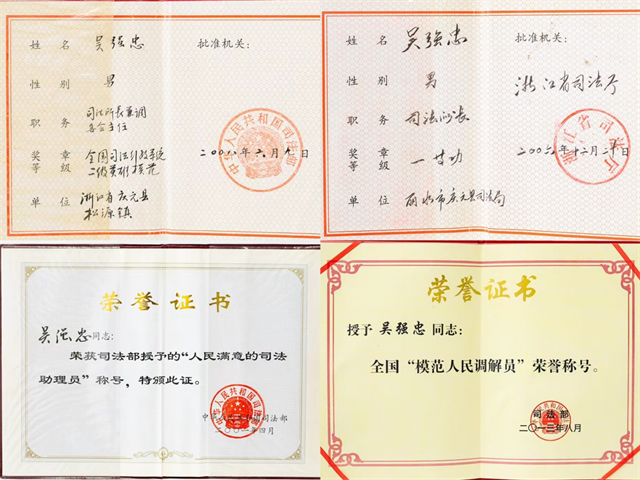 姓名 吴强忠 批准机关:
性别 男
职务 司法所长兼调
委会主任
奖章
等级 全国司法行政系统
二级英雄模范
二〇〇二年六月九日
单位 浙江省庆元县
松源镇
中华人民共和国司法部
姓名 吴强忠 批准机关:
性别 男 浙江省司法厅
职务 司法所长
奖章
等级 一等功
单位 丽水市庆元县司法局
浙江省司法厅
荣誉证书
吴强忠同志:
荣获司法部授予的“人民满意的司法
助理员”称号,特颁此证。
中华人民共和国司法部
荣誉证书
授予 吴强忠 同志:
全国“模范人民调解员”荣誉称号。
司法部
二〇一三年八月